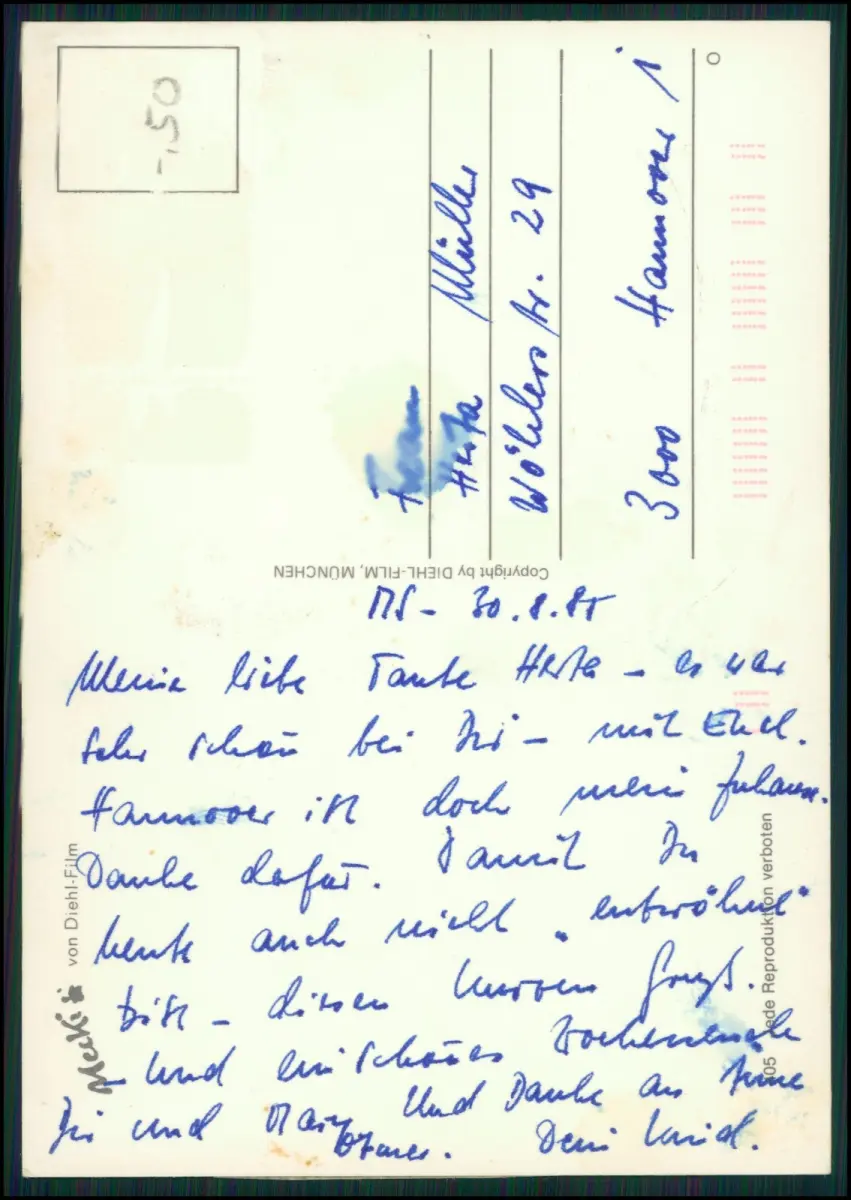 -,50
Frau
Herta Müller
Wöhlerstr. 29
3000 Hannover 1
Copyright by DIEHL-FILM, MÜNCHEN
MS - 30.8.85
Meine liebe Tante Herta - es war
sehr schön bei Dir - mit Euch.
Hannover ist doch mein Zuhause.
Danke dafür. Damit Du
heute auch nicht „entwöhnt"
bist - diesen kurzen Gruß.
- und ein schönes Wochenende
Dir und Und Danke an
Dein
Mecki von Diehl-Film
Jede Reproduktion verboten